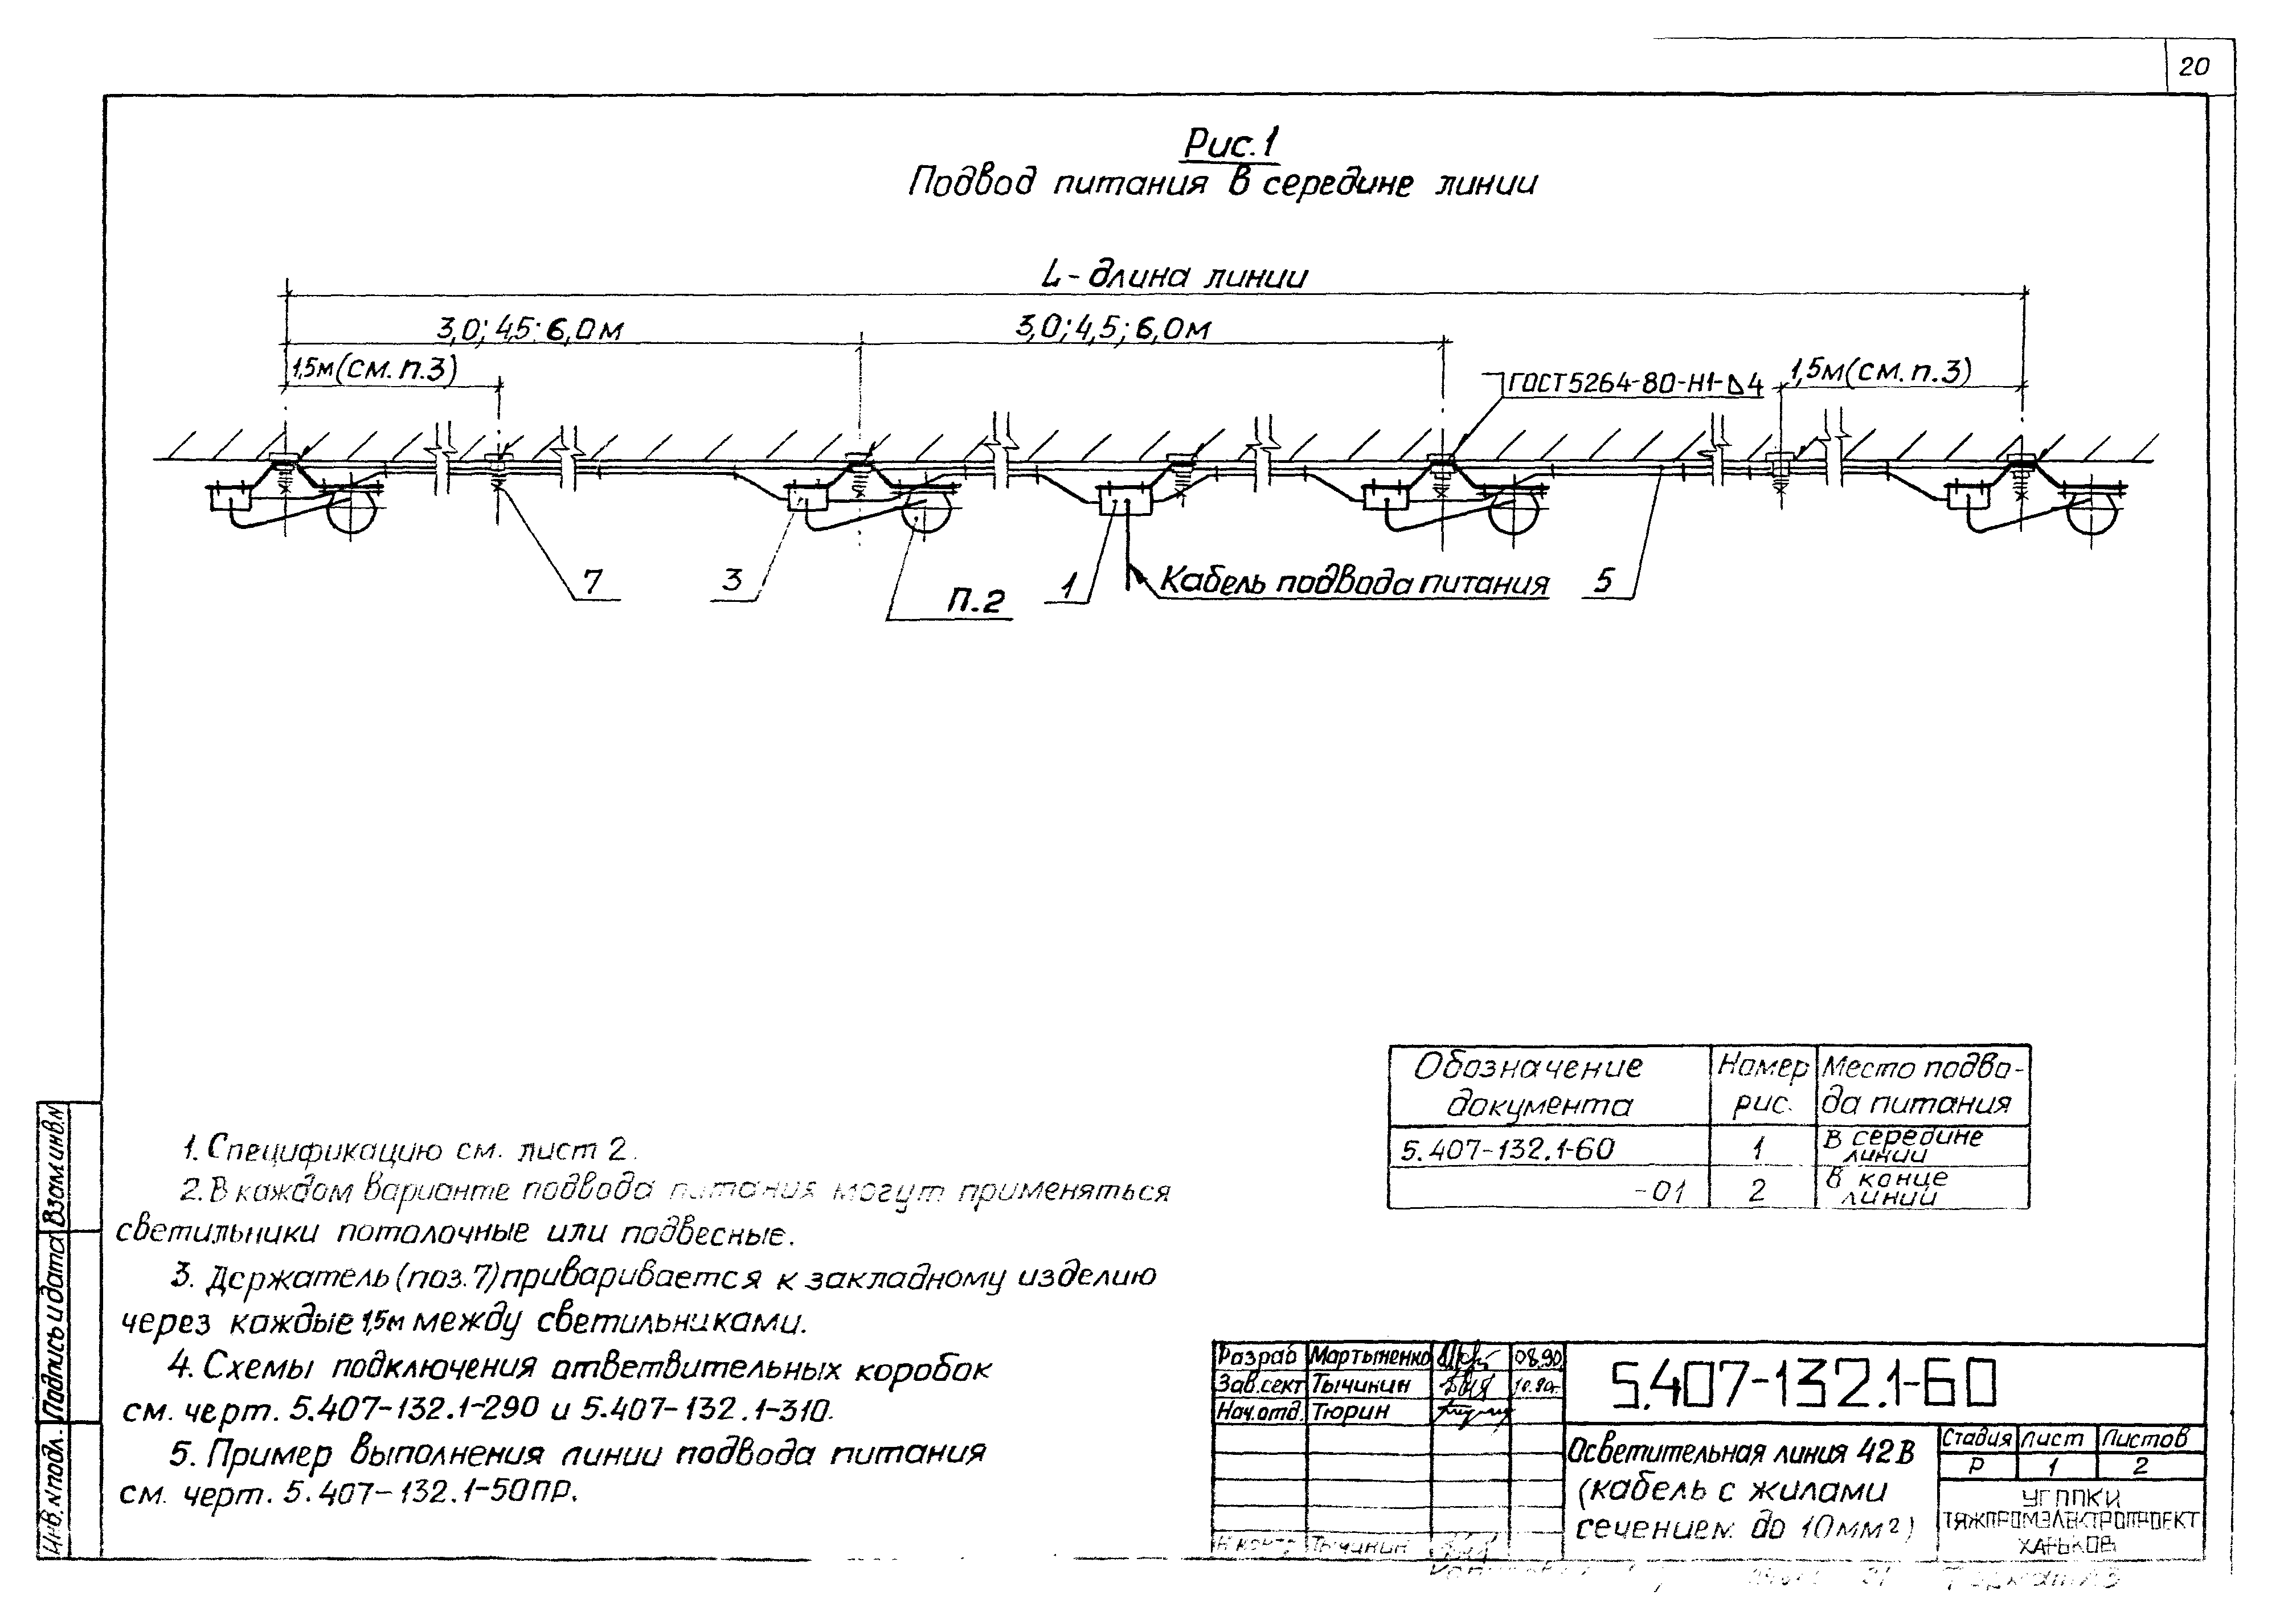 20
Рис.1
Подвод питания в середине линии
L - длина линии
3,0; 4,5; 6,0м
3,0; 4,5; 6,0м
1,5м (см. п.3)
ГОСТ 5264-80-Н1-△4
1,5м (см. п.3)
7
3
П.2
1
Кабель подвода питания
5
Обозначение документа
Номер рис.
Место подвода питания
5.407-132.1-60
1
В середине линии
-01
2
В конце линии
1. Спецификацию см. лист 2.
2. В каждом варианте подвода питания могут применяться
светильники потолочные или подвесные.
3. Держатель (поз. 7) приваривается к закладному изделию
через каждые 1,5м между светильниками.
4. Схемы подключения ответвительных коробок
см. черт. 5.407-132.1-290 и 5.407-132.1-310.
5. Пример выполнения линии подвода питания
см. черт. 5.407-132.1-50ПР.
Взам.инв.N
Подпись и дата
Инв.N подл.
Разраб Мартыненко 08.90
Зав.сект Тычинин 10.90г.
Нач.отд. Тюрин
Н.контр Тычинин
5.407-132.1-60
Осветительная линия 42В
(кабель с жилами
сечением до 10мм²)
Стадия Лист Листов
Р 1 2
УГППКИ
ТЯЖПРОМЭЛЕКТРОПРОЕКТ
ХАРЬКОВ
Формат А3